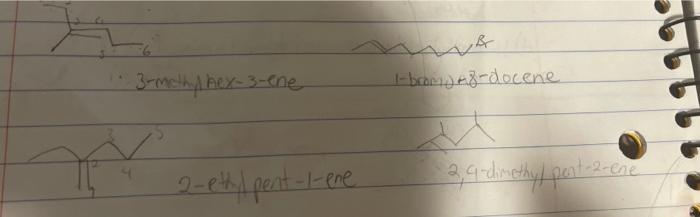 3 4
5 6
Br
3-methylhex-3-ene 1-bromo-8-docene
3 5
2 4
1
2-ethyl pent-1-ene 2,4-dimethyl pent-2-ene